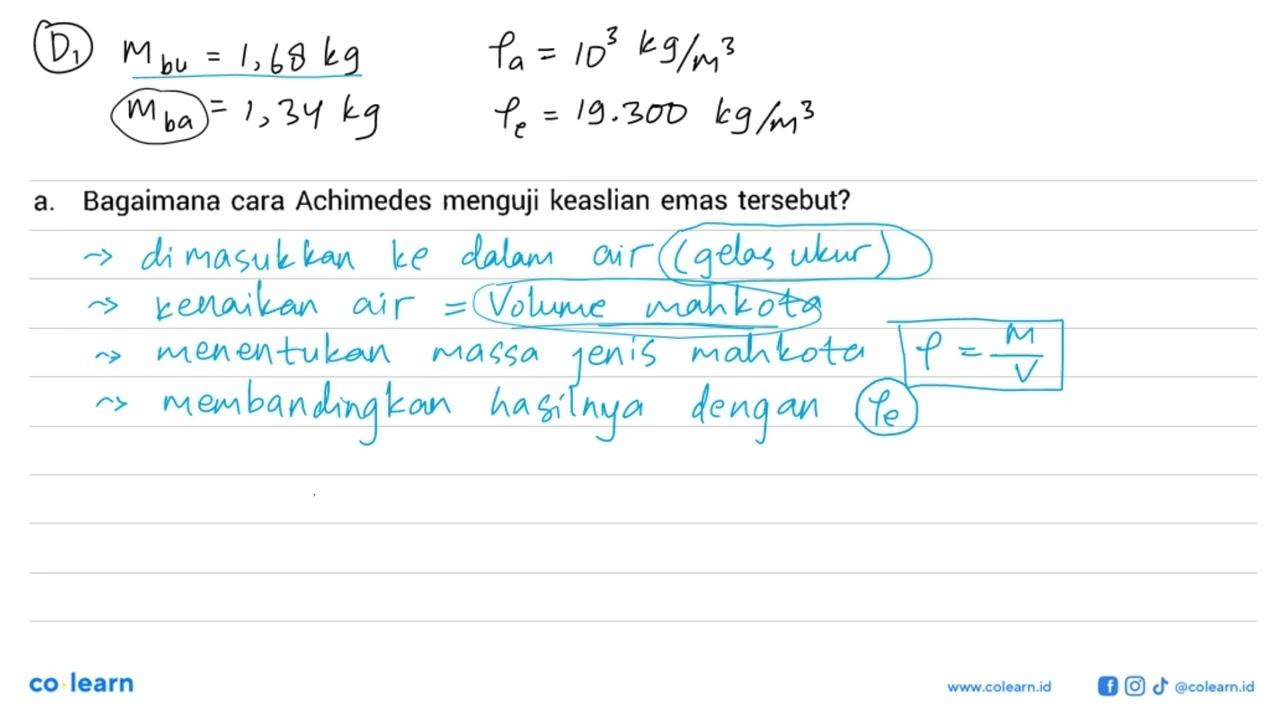 D₁ m_bu = 1,68 kg ρ_a = 10³ kg/m³
m_ba = 1,34 kg ρ_e = 19.300 kg/m³
a. Bagaimana cara Achimedes menguji keaslian emas tersebut?
~> dimasukkan ke dalam air (gelas ukur)
~> kenaikan air = Volume mahkota
~> menentukan massa jenis mahkota ρ = M/V
~> membandingkan hasilnya dengan ρ_e
co learn www.colearn.id @colearn.id